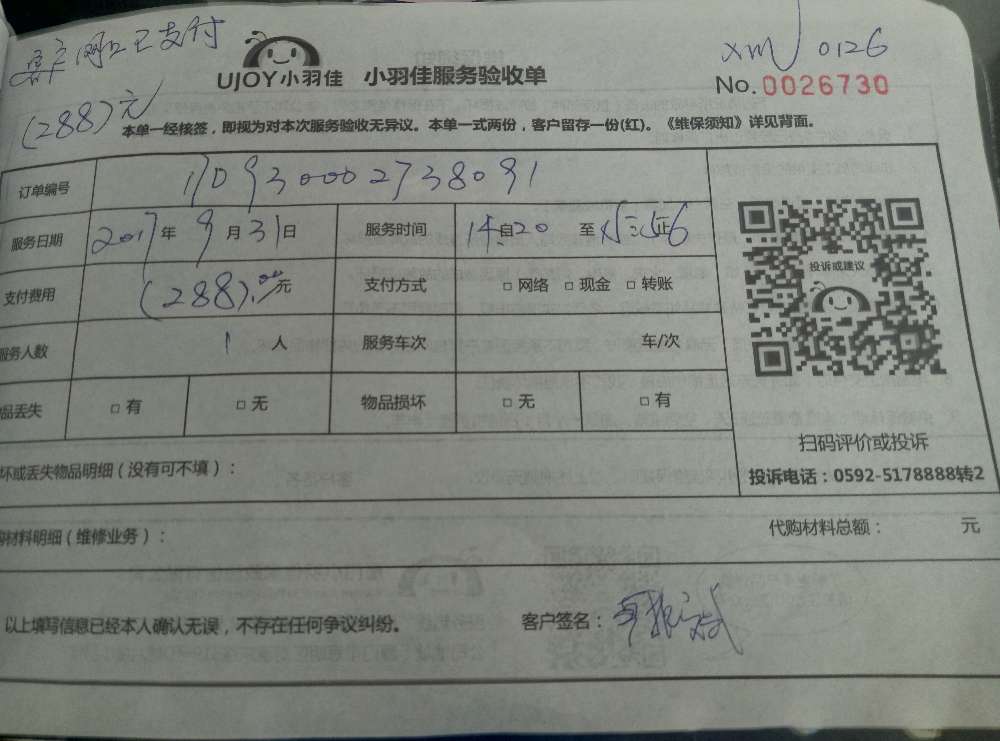 网上已支付
(288)元
xm 0126
UJOY小羽佳 小羽佳服务验收单
No.0026730
本单一经核签，即视为对本次服务验收无异议。本单一式两份，客户留存一份(红)。《维保须知》详见背面。
订单编号 1709300002738091
服务日期 2017年9月31日 服务时间 14自20 至
支付费用 (288).00元 支付方式 □ 网络 □ 现金 □ 转账
服务人数 1 人 服务车次 车/次
品丢失 □ 有 □ 无 物品损坏 □ 无 □ 有
投诉或建议
扫码评价或投诉
投诉电话：0592-5178888转2
坏或丢失物品明细（没有可不填）：
材料明细（维修业务）： 代购材料总额： 元
以上填写信息已经本人确认无误，不存在任何争议纠纷。 客户签名：